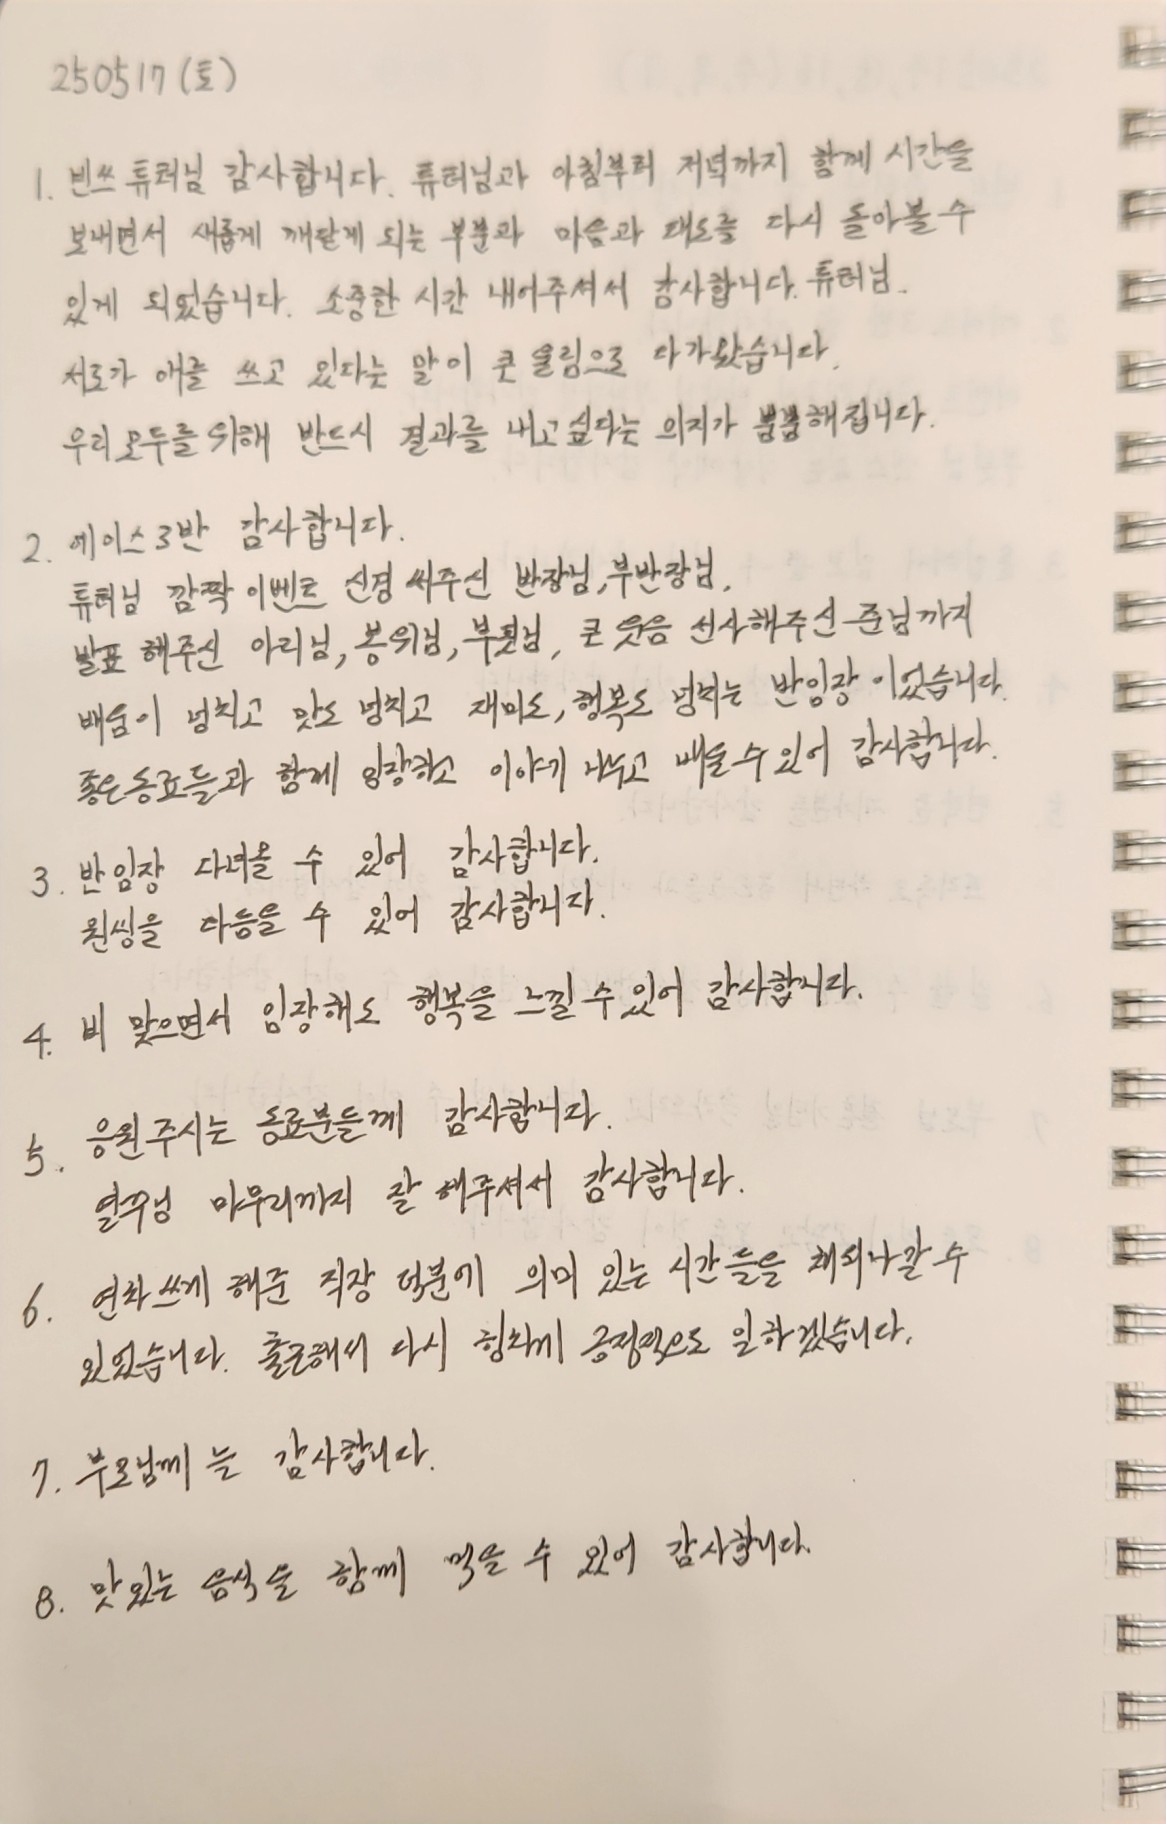 250517 (토)
1. 빈쓰 튜터님 감사합니다. 튜터님과 아침부터 저녁까지 함께 시간을
보내면서 새롭게 깨닫게 되는 부분과 마음과 태도를 다시 돌아볼 수
있게 되었습니다. 소중한 시간 내어주셔서 감사합니다. 튜터님.
서로가 애를 쓰고 있다는 말이 큰 울림으로 다가왔습니다.
우리 모두를 위해 반드시 결과를 내고 싶다는 의지가 뿜뿜해집니다.
2. 에이스 3반 감사합니다.
튜터님 깜짝 이벤트 신경 써주신 반장님, 부반장님,
발표 해주신 아리님, 봉위님, 큰 웃음 선사해주신 준님까지
배움이 넘치고 맛도 넘치고 재미도, 행복도 넘치는 반임장 이었습니다.
좋은 동료들과 함께 임장하고 이야기 나누고 배울 수 있어 감사합니다.
3. 반임장 다녀올 수 있어 감사합니다.
원씽을 다등을 수 있어 감사합니다.
4. 비 맞으면서 임장해도 행복을 느낄 수 있어 감사합니다.
5. 응원주시는 동료분들께 감사합니다.
마무리까지 잘 해주셔서 감사합니다.
6. 연차쓰게 해준 직장 덕분에 의미 있는 시간들을 채워나갈 수
있었습니다. 출근해서 다시 힘차게 긍정적으로 일하겠습니다.
7. 부모님께 늘 감사합니다.
8. 맛있는 음식을 함께 먹을 수 있어 감사합니다.